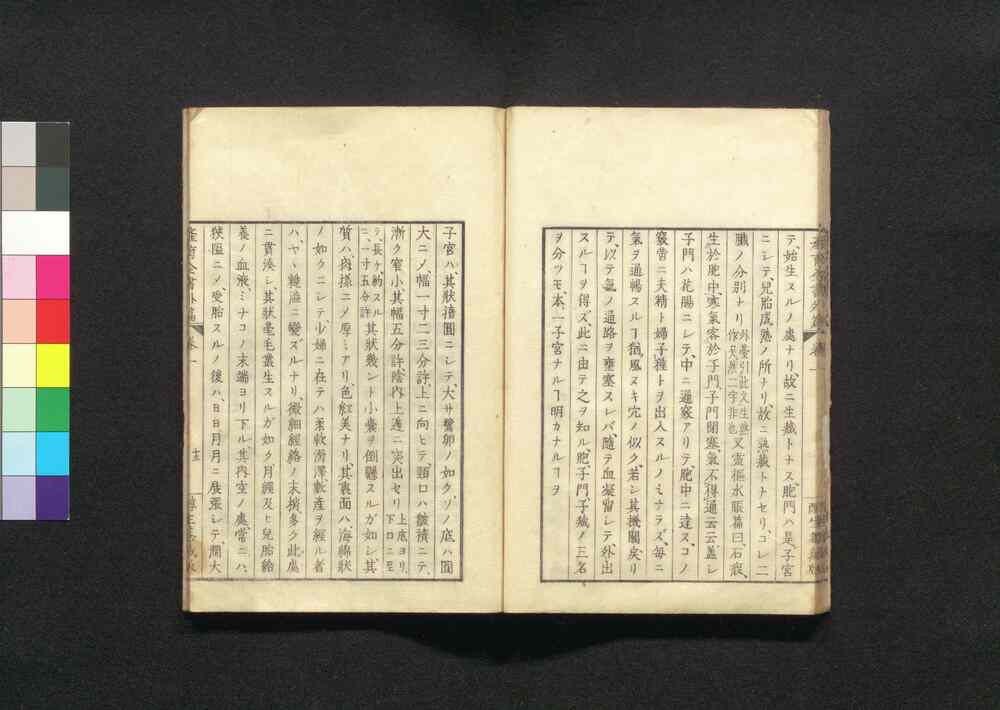 テ始生スルノ處ナリ、故ニ生藏トナス、胞門ハ是子宮
ニシテ、兒胎成熟ノ所ナリ、故ニ熟藏トナセリ、コレ二
臟ノ分別ナリ 外臺引此文生熟作 二字非也 又靈樞水脹篇曰、石瘕、
生於胞中、寒氣客於子門、子門閉塞、氣不得通云云、蓋シ
子門ハ花腸ニシテ、中ニ通竅アリテ胞中ニ達ス、コノ
竅啻ニ夫精ト婦子種トヲ出入スルノミナラズ、毎ニ
氣ヲ通暢スルヿ猶風ヌキ穴ノ似ク、若シ其機關戻リ
テ、以テ氣ノ通路ヲ壅塞スレバ隨テ血凝留シテ外出
スルヿヲ得ズ、此ニ由テ之ヲ知ル、胞、子門、子藏ノ三名
ヲ分ツモ、本一子宮ナルヿ明カナルヿヲ
子宮ハ、其狀橢圓ニシテ、大サ鷄卵ノ如クソノ底ハ圓
大ニ〆、幅一寸二三分許、上ニ向ヒテ、頸口ハ皺襀ニテ、
漸ク窄小、其幅五分許、陰内上邊ニ突出セリ 上底ヨリ、下口ニ至
テ、長ケ、約スルニ、一寸五分許 其狀幾ント小囊ヲ倒懸スルガ如シ、其
質ハ、肉様ニ〆厚ミアリ、色紅美ナリ、其裏面ハ、海綿狀
ノ如クニシテ、少婦ニ在テハ柔軟滑澤、數產ヲ經ル者
ハ、ヤヽ糙澁ニ變ズルナリ、微細經絡ノ末梢、多ク此處
ニ貫湊シ、其狀毫毛叢生スルガ如ク月經及ヒ兒胎給
養ノ血液、ミナコノ末端ヨリ下ル、其内空ノ處、當ニハ、
狹隘ニ〆、受胎スルノ後ハ、日日月月ニ展張シテ、濶大
產育全書外篇 卷一 十三